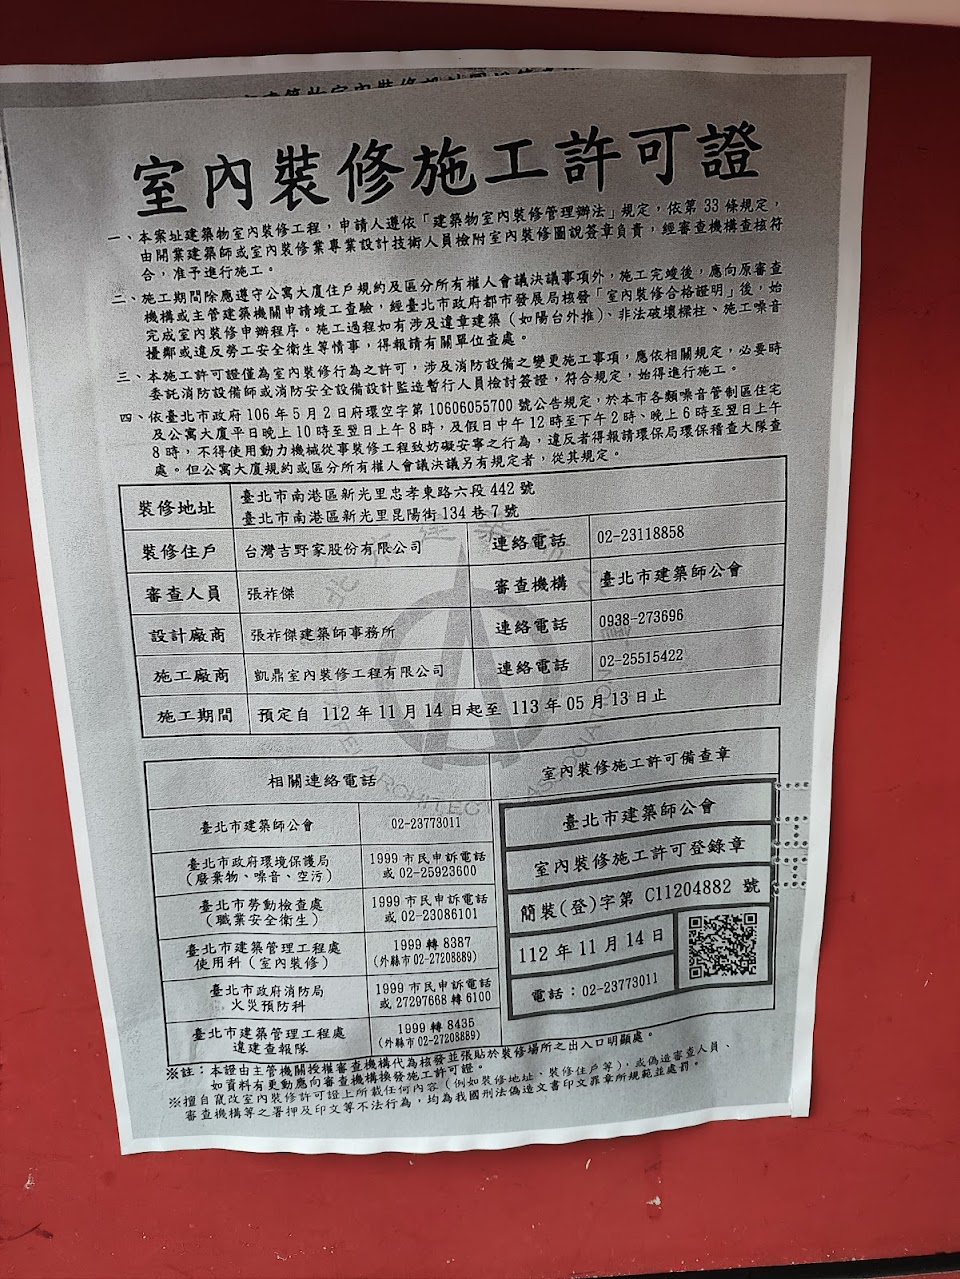 室內裝修施工許可證
一、本案址建築物室內裝修工程，申請人遵依「建築物室內裝修管理辦法」規定，依第 33 條規定，
由開業建築師或室內裝修業專業設計技術人員檢附室內裝修圖說簽章負責，經審查機構查核符
合，准予進行施工。
二、施工期間除應遵守公寓大廈住戶規約及區分所有權人會議決議事項外，施工完竣後，應向原審查
機構或主管建築機關申請竣工查驗，經臺北市政府都市發展局核發「室內裝修合格證明」後，始
完成室內裝修申辦程序。施工過程如有涉及違章建築（如陽台外推）、非法破壞樑柱、施工噪音
擾鄰或違反勞工安全衛生等情事，得報請有關單位查處。
三、本施工許可證僅為室內裝修行為之許可，涉及消防設備之變更施工事項，應依相關規定，必要時
委託消防設備師或消防安全設備設計監造暫行人員檢討簽證，符合規定，始得進行施工。
四、依臺北市政府 106 年 5 月 2 日府環空字第 10606055700 號公告規定，於本市各類噪音管制區住宅
及公寓大廈平日晚上 10 時至翌日上午 8 時，及假日中午 12 時至下午 2 時、晚上 6 時至翌日上午
8 時，不得使用動力機械從事裝修工程致妨礙安寧之行為，違反者得報請環保局環保稽查大隊查
處。但公寓大廈規約或區分所有權人會議決議另有規定者，從其規定。
裝修地址 臺北市南港區新光里忠孝東路六段 442 號
臺北市南港區新光里昆陽街 134 巷 7 號
裝修住戶 台灣吉野家股份有限公司 連絡電話 02-23118858
審查人員 張祚傑 審查機構 臺北市建築師公會
設計廠商 張祚傑建築師事務所 連絡電話 0938-273696
施工廠商 凱鼎室內裝修工程有限公司 連絡電話 02-25515422
施工期間 預定自 112 年 11 月 14 日起至 113 年 05 月 13 日止
相關連絡電話
臺北市建築師公會 02-23773011
臺北市政府環境保護局 1999 市民申訴電話
（廢棄物、噪音、空污） 或 02-25923600
臺北市勞動檢查處 1999 市民申訴電話
（職業安全衛生） 或 02-23086101
臺北市建築管理工程處 1999 轉 8387
使用科（室內裝修） (外縣市 02-27208889)
臺北市政府消防局 1999 市民申訴電話
火災預防科 或 27297668 轉 6100
臺北市建築管理工程處 1999 轉 8435
違建查報隊 (外縣市 02-27208889)
室內裝修施工許可備查章
臺北市建築師公會
室內裝修施工許可登錄章
簡裝(登)字第 C11204882 號
112 年 11 月 14 日
電話：02-23773011
※註：本證由主管機關授權審查機構代為核發並張貼於裝修場所之出入口明顯處。
如資料有更動應向審查機構換發施工許可證。
※擅自竄改室內裝修許可證上所載任何內容（例如裝修地址、裝修住戶等），或偽造審查人員、
審查機構等之署押及印文等不法行為，均為我國刑法偽造文書印文罪章所規範並處罰。